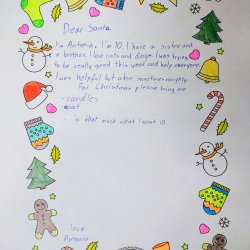 Dear Santa
I'm Antonia, I'm 10. I have a sister and
a brother. I love cats and dogs. I was trying
to be really good this year and help everyone.
I was helpful but also sometimes naughty.
For Christmas please bring me
- candles
is that much what I want :)
love
Antonia